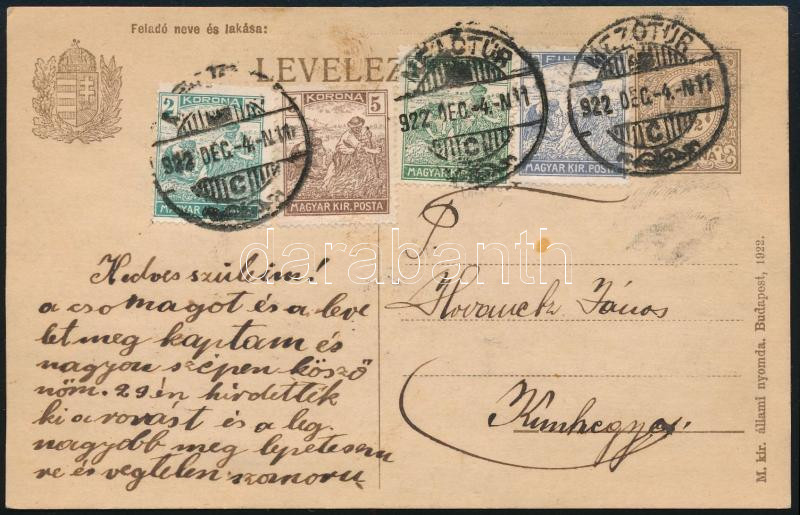 Feladó neve és lakása:
LEVELEZ
2 KORONA
MAGYAR KIR. POSTA
KORONA 5
MAGYAR KIR. POSTA
MAGYAR KIR. POSTA
MAGYAR KIR. POSTA
922 DEC.-4.-N11
C
MEZŐTÚR
922 DEC.-4.-N11
C
MEZŐTÚR
922 DEC.-4.-N11
C
darabanth
P.
Hovanetz János
Kunhegyes.
Kedves szüleim!
a csomagot és a leve
let meg kaptam és
nagyon szépen köszö
nöm. 29 én hirdették
ki a rovást és a leg
nagyobb meg lepetesem
re és végtelen szomoru
M. kir. állami nyomda. Budapest, 1922.